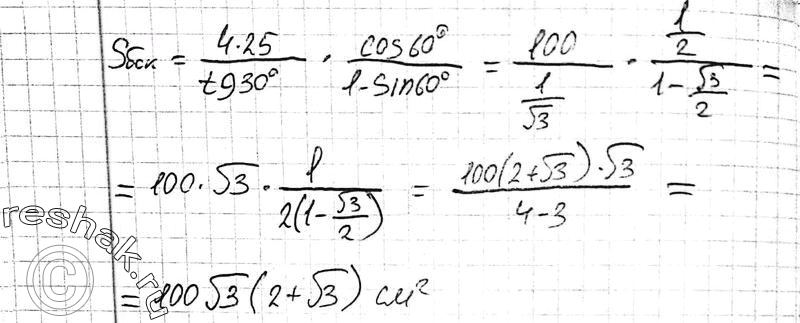 Sбок = 4·25/tg30° · cos60°/1-sin60° = 100/(1/√3) · (1/2)/(1-√3/2) =
= 100·√3·1/2(1-√3/2) = 100(2+√3)·√3/4-3 =
= 100√3(2+√3) см²
reshak.ru
©